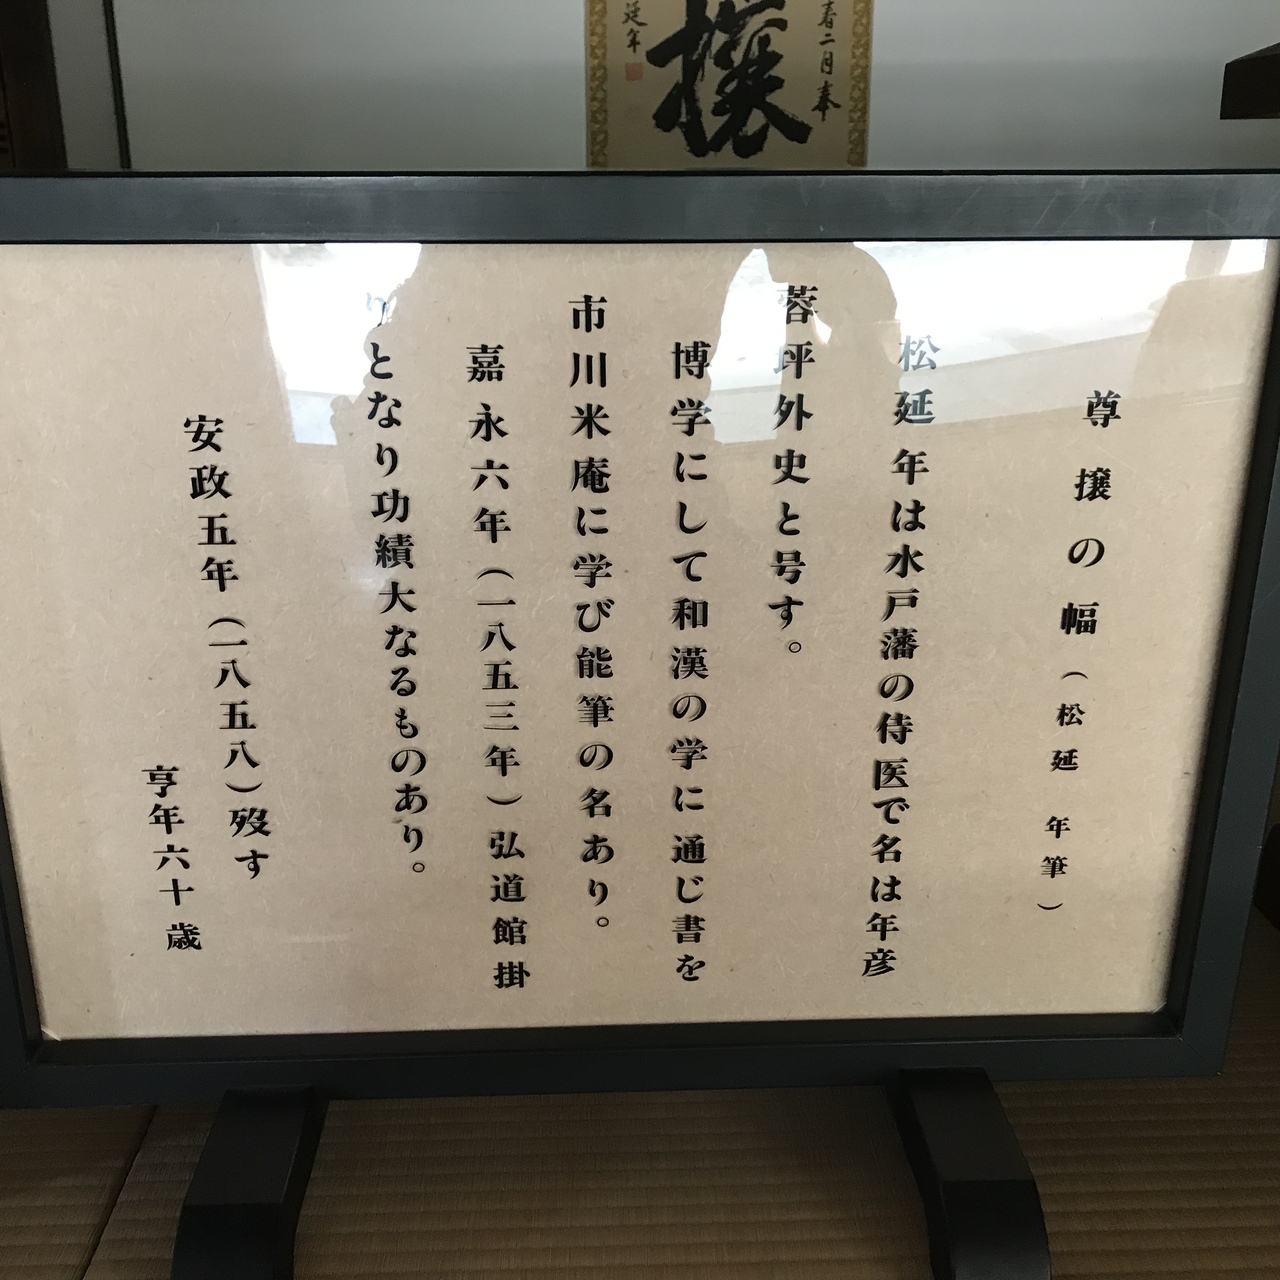 春二月奉
攘
延年
尊攘の幅(松延 年筆)
松延 年は水戸藩の侍医で名は年彦
蓉坪外史と号す。
博学にして和漢の学に通じ書を
市川米庵に学び能筆の名あり。
嘉永六年(一八五三年)弘道館掛
りとなり功績大なるものあり。
安政五年(一八五八)歿す
亨年六十歳